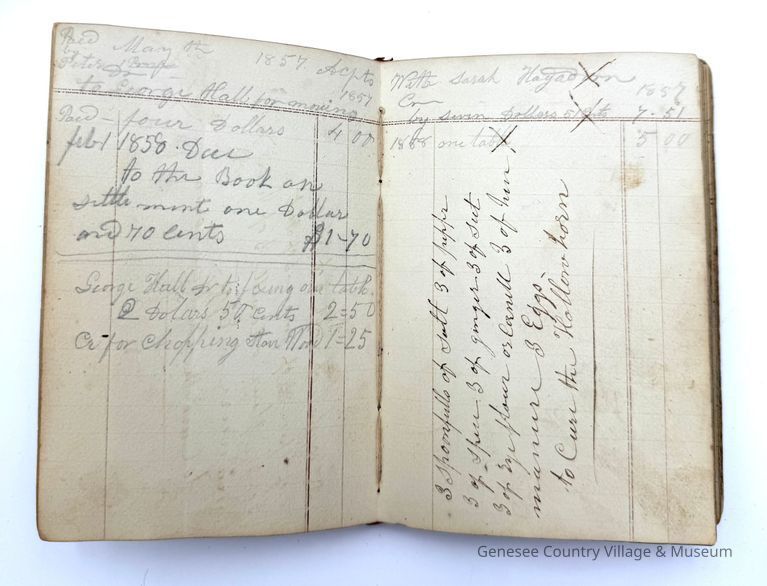 Paid May th 1857. Acpts
by
to George Hall for moving 1857
Paid - four Dollars 4 00
feb 1 1858. Due
to the Book on
settlement one Dollar
and 70 Cents $1-70
George Hall Dr to fixing one table
2 Dolars 50 Cents 2=50
Cr for Chopping Stove Wood 1=25
With Sarah Hagadorn 1857
Cr
by seven Dollars 51 cts 7.51
1858 one table 5 00
3 Spoonfulls of Salt 3 of pepper
3 of spice 3 of ginger 3 of Sut
3 of rye flour or Canell 3 of hen
manure 3 Eggs
to Cure the Hollow horn
Genesee Country Village & Museum